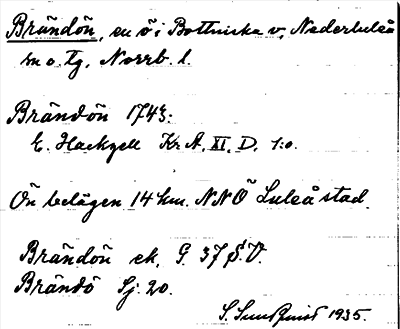 Brändön, en ö i Bottniska v., Nederluleå
sn o. tg, Norrb. l.
Brändön 1743:
E. Hackzell Kr. A. XI. D. 1:o.
Ön belägen 14 km. NNÖ Luleå stad.
Brändön ek. G. 37 S.V.
Brändö Sj. 20.
S. Sundqvist 1935.